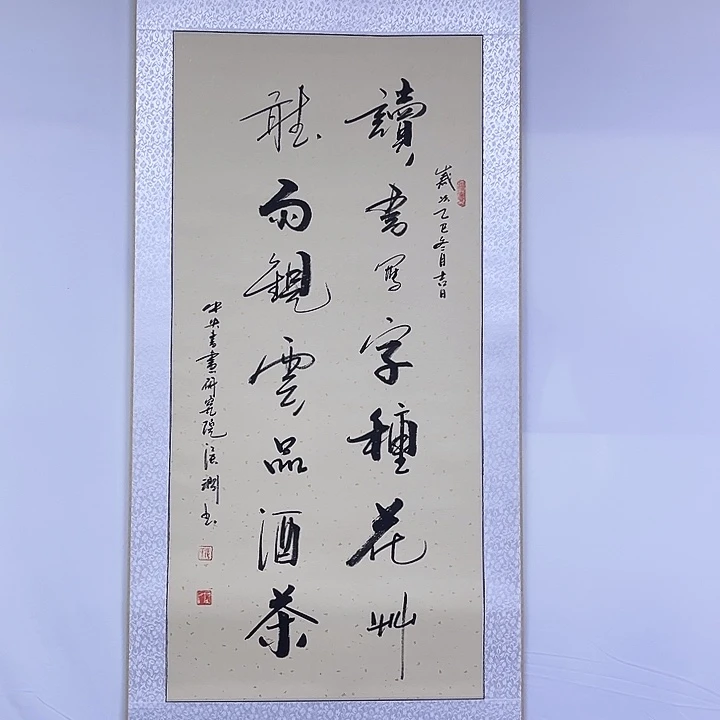 歲次乙巳冬月吉日
讀書寫字種花艸
聽雨觀雲品酒茶
中央書畫研究院書